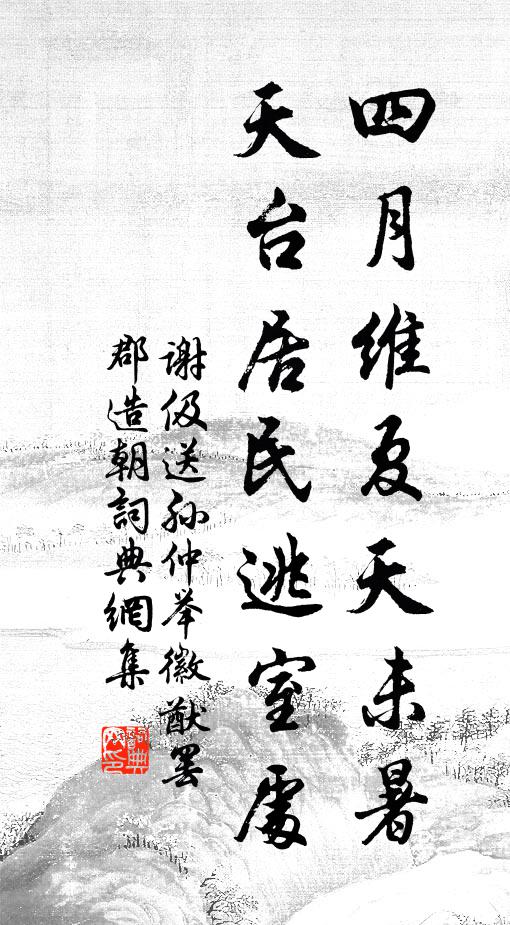 四月維夏天未暑
天台居民逃室處
謝伋送孫仲举徽猷罢
郡造朝詞典網集